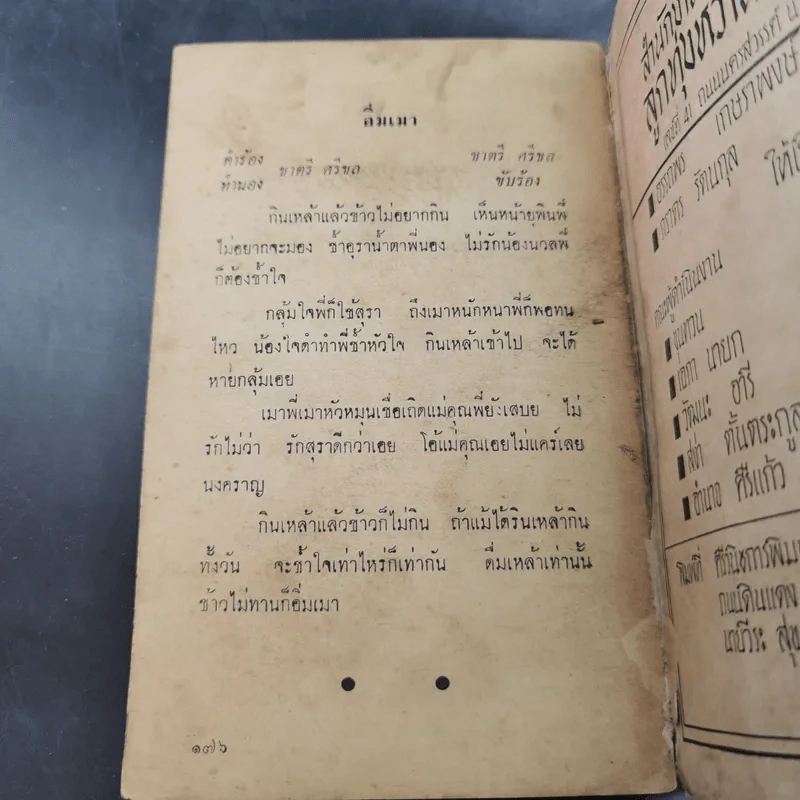 อิ่มเมา
คำร้อง ชาตรี ศรีชล ชาตรี ศรีชล
ทำนอง ขับร้อง
กินเหล้าแล้วข้าวไม่อยากกิน เห็นหน้ายุพินพี่
ไม่อยากจะมอง ช้ำอุราน้ำตาพี่นอง ไม่รักน้องนวลพี่
ก็ต้องช้ำใจ
กลุ้มใจพี่ก็ใช้สุรา ถึงเมาหนักหนาพี่ก็พอทน
ไหว น้องใจดำทำพี่ช้ำหัวใจ กินเหล้าเข้าไป จะได้
หายกลุ้มเอย
เมาพี่เมาหัวหมุนเชื่อเถิดแม่คุณพี่ยังเสบย ไม่
รักไม่ว่า รักสุราดีกว่าเอย โอ้แม่คุณเอยไม่แคร์เลย
นงคราญ
กินเหล้าแล้วข้าวก็ไม่กิน ถ้าแม้ได้รินเหล้ากิน
ทั้งวัน จะช้ำใจเท่าไหร่ก็เท่ากัน ดื่มเหล้าเท่านั้น
ข้าวไม่ทานก็อิ่มเมา
๑๗๖
ลูกทุ่งหวาน
เลขที่ 41 ถนนนครสวรรค์
อรรถพร เกษราพงษ์
ภราดร รัตนกุล
ขุนทวน
เอกา นายก
วัฒนะ อารี
สุชา ตั้นตระกูล
อำนาจ ศิริแก้ว
พิมพ์ที่
ถนนดินแดง
นายวีระ